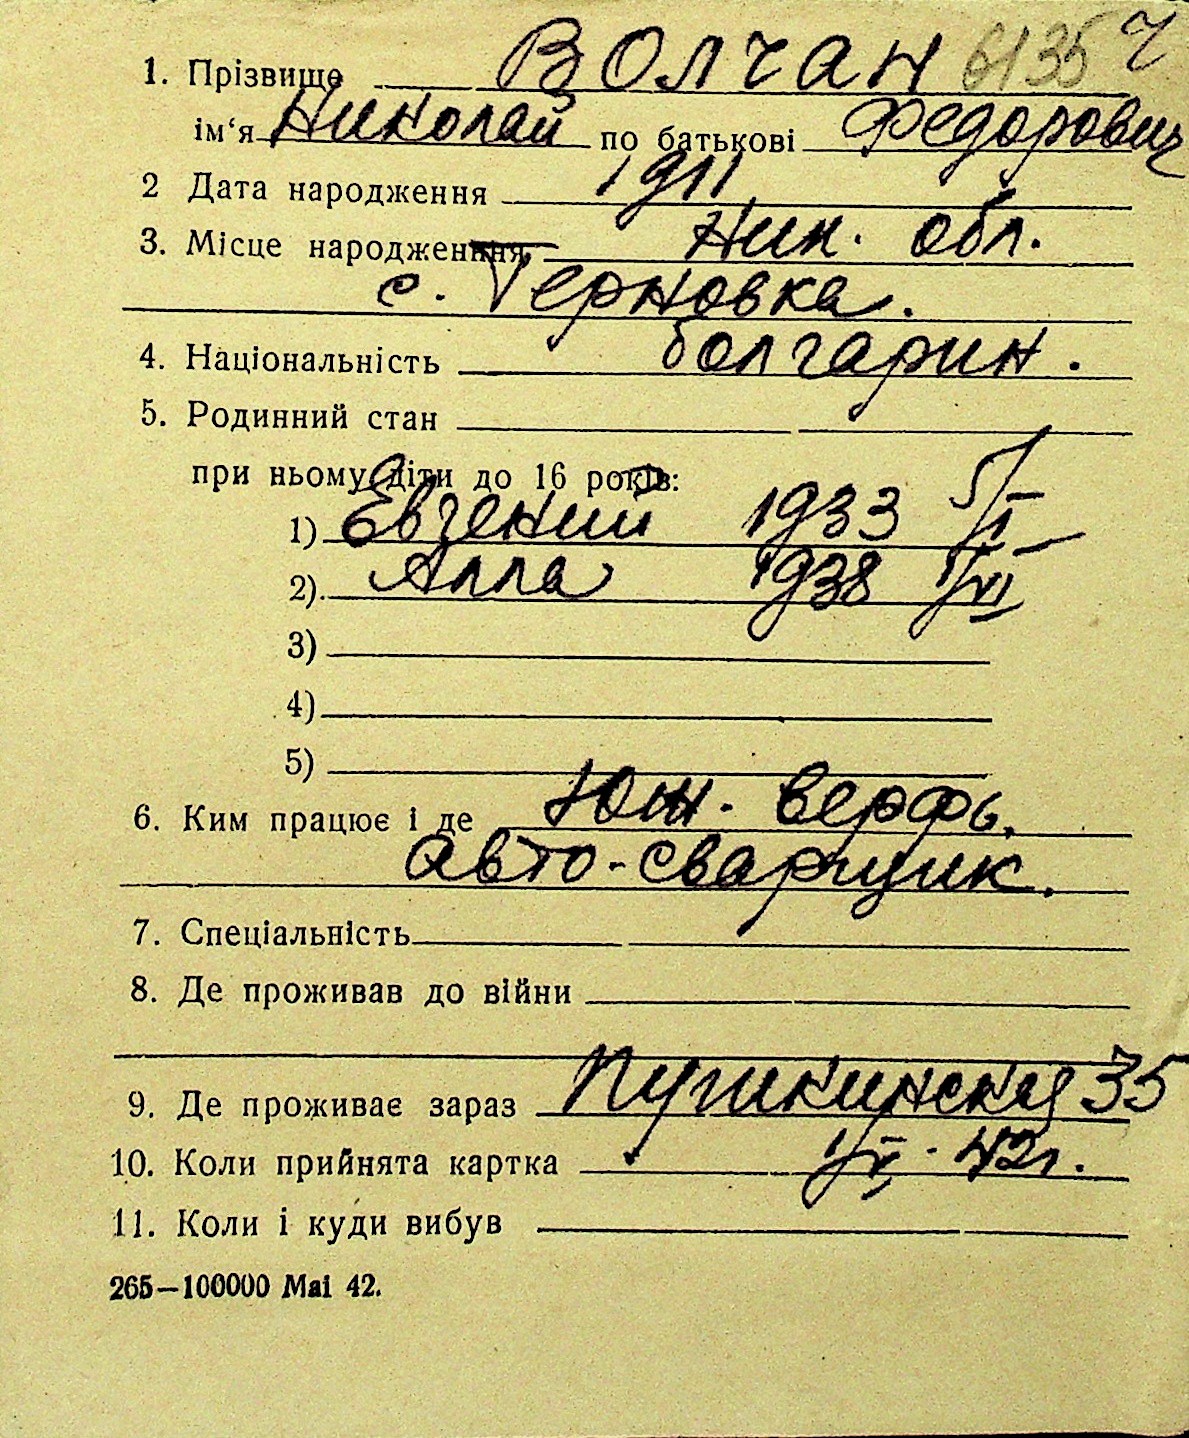 1. Прізвище ВОЛЧАН 6135 Ч
ім‘я Николай по батькові Федорович
2 Дата народження 1911
3. Місце народження Ник. обл.
с. Терновка.
4. Національність болгарин.
5. Родинний стан
при ньому діти до 16 років:
1) Евгений 1933 5/I
2). Алла 1938 1/VI
3)
4)
5)
6. Ким працює і де Юж. верфь.
авто-сварщик.
7. Спеціальність
8. Де проживав до війни
9. Де проживає зараз Пушкинская 35
10. Коли прийнята картка 42г.
11. Коли і куди вибув
265—100000 Mai 42.